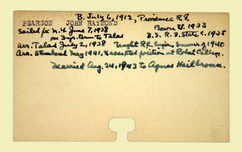 B. July 6, 1912, Providence R.I.
PEARSON JOHN RAYMOND
Brown U. 1933
Sailed fr. N.Y. June 7, 1938 B.S. R.I. State C. 1935
on 3 yr. term to Talas
Arr. Talas July 2, 1938 Taught R.C. Engin. Summer of 1940
Arr. Stamboul May 1941, accepted position at Robert College.
Married Aug. 24, 1943 to Agnes Heilbronn.